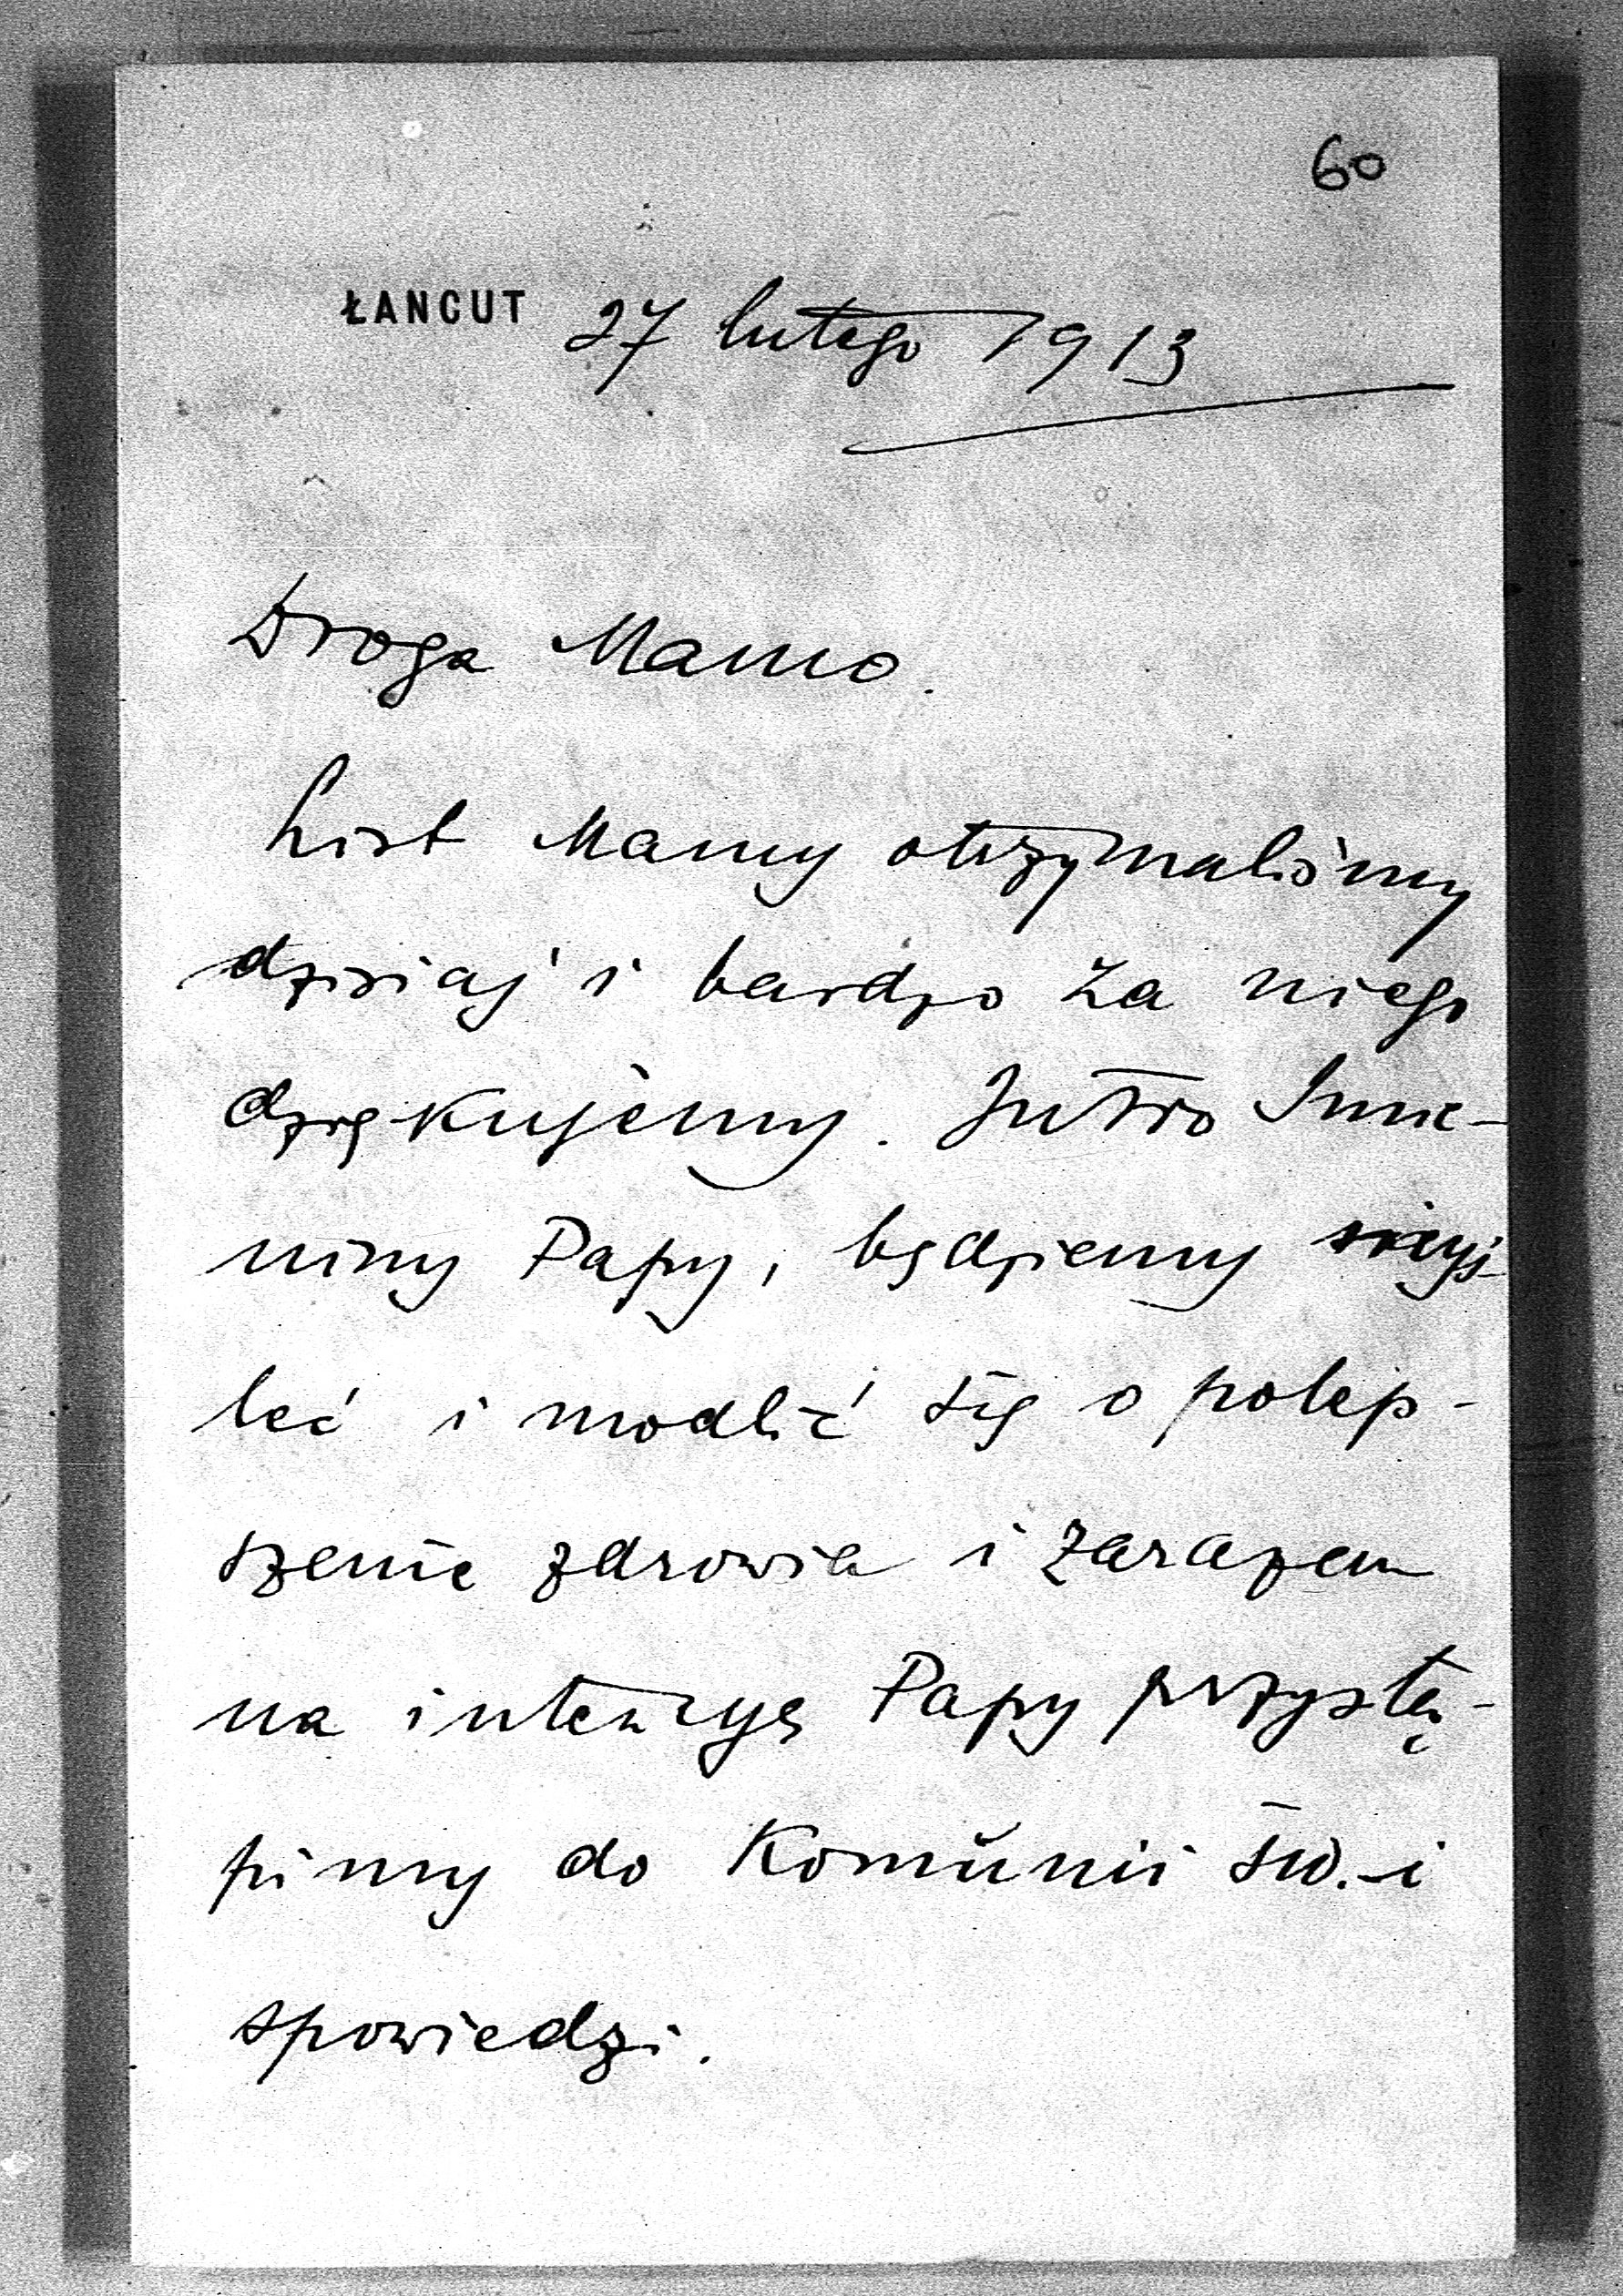 60
ŁANCUT 27 lutego 1913
Droga Mamo.
List Mamy otrzymaliśmy
dzisiaj i bardzo za niego
dziękujemy. Jutro Imie-
niny Papy, będziemy myś-
leć i modlić się o polep-
szenie zdrowia i zarazem
na intencyę Papy przystą-
pimy do Komunii św. i
spowiedzi.